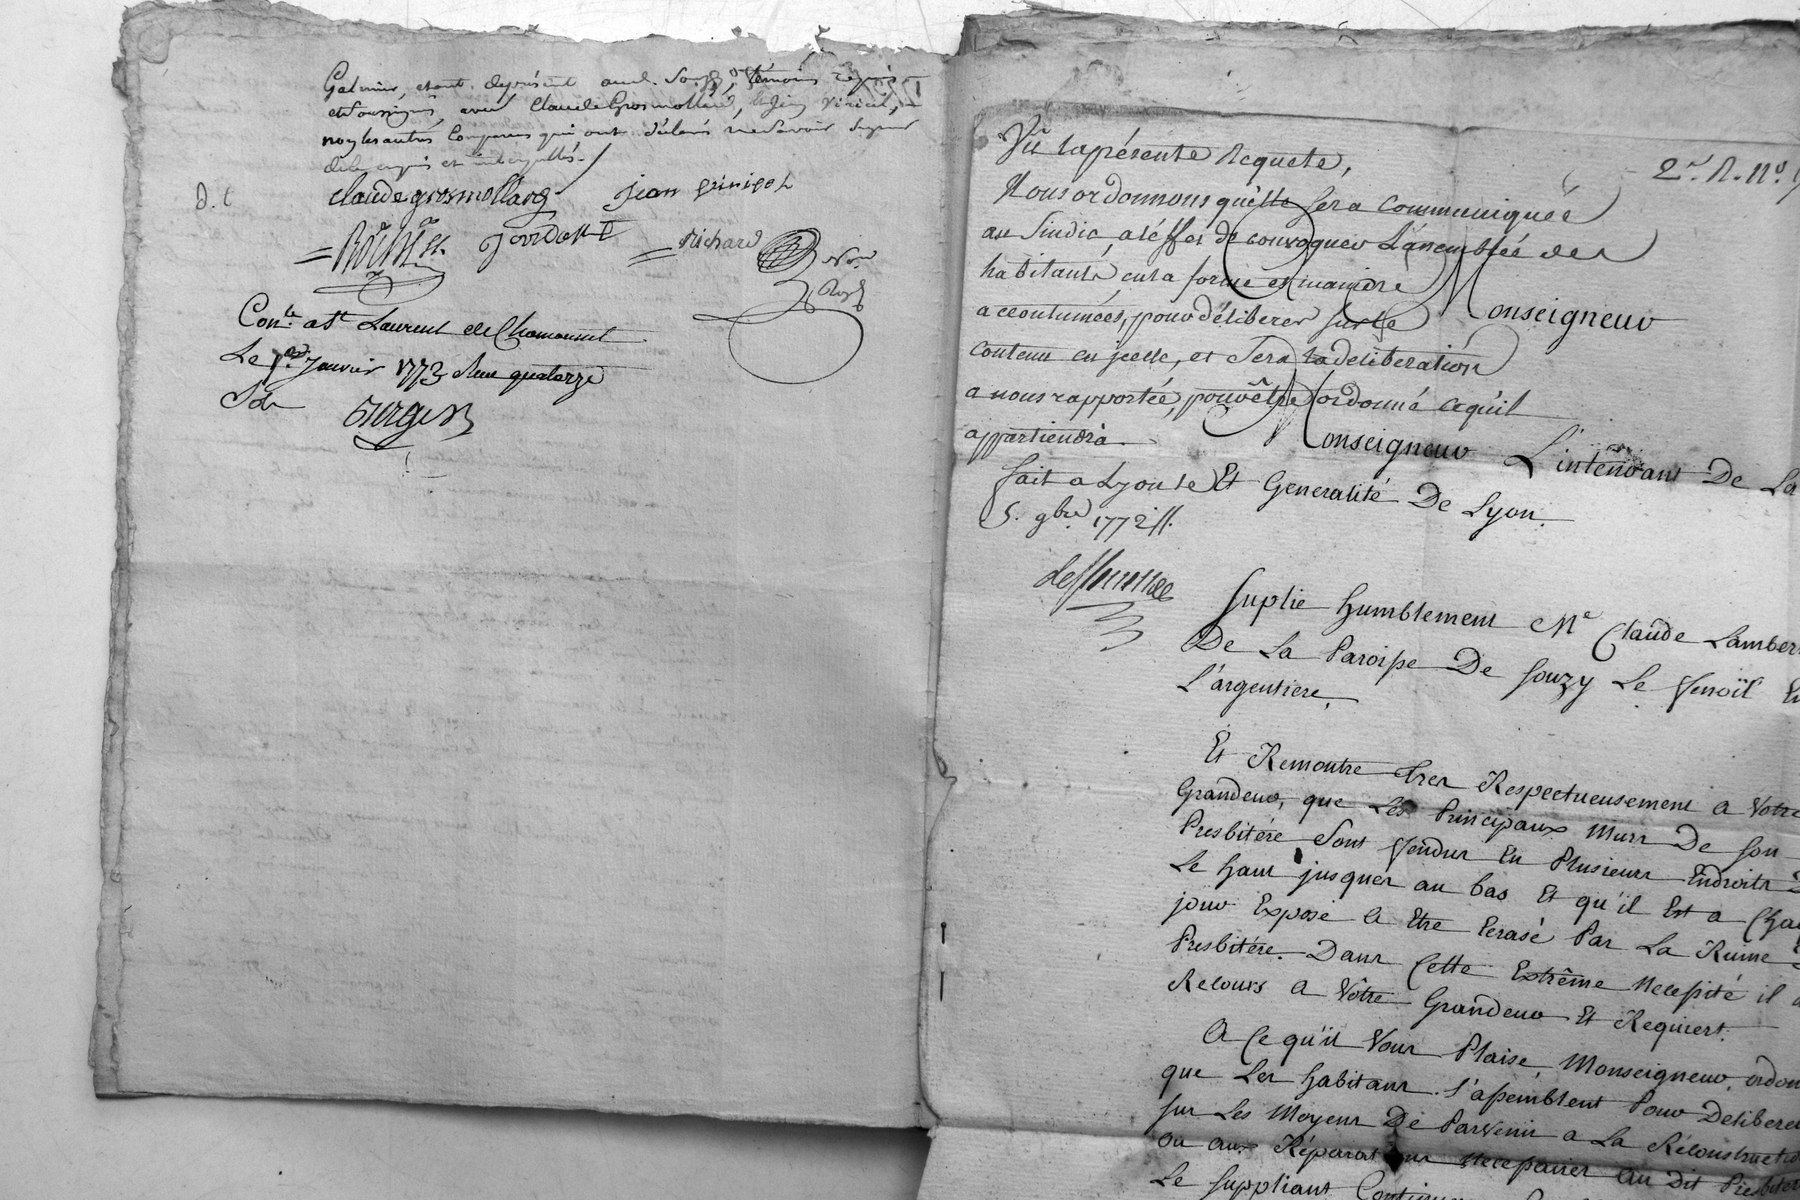 Galmier, etant de présent aud. Souzy, témoins requis
et Soussignés, avec Claude Grosmollard,
non les autres Comparus qui ont déclarés ne Savoir Signer
de ce enquis et interpellés.
claude grosmollard jean
D. C
Richard Nore
Royl
Con.lé a St Laurent de Chamousset
Le Janvier 1773 Reçu quatorze
Sols
2e. R. No.
Vû la présente Requete,
Nous ordonnons qu'elle sera communiquée
au Sindic, a l'effet de convoquer L'assemblée des
habitants, en la forme et maniere
accoutumées, pour déliberer sur le
contenu en jcelle, et Sera la déliberation
a nous rapportée, pour être ordonné ce qu'il
appartiendra.
fait a Lyon le
5. 9bre 1772 ff.
Monseigneur
Monseigneur L'intendant De La
Et Generalité De Lyon.
Suplie humblement Me Claude Lamber
De La Paroisse De Souzy Le
L'argentiere,
Et Remontre tres Respectueusement a Votre
Grandeur, que Les Principaux Murs De son
Presbitére Sont fendus En Plusieurs Endroits
Le haut jusques au bas Et qu'il Est a Cha
jour Exposé a Etre Ecrasé Par La Ruine
Presbitére. Dans Cette Extrême Necessité il
Recours a Vôtre Grandeur Et Requiert.
A Ce qu'il Vous Plaise, Monseigneur, ordon
que Les habitans s'assemblent Pour Deliberer
sur Les Moyens De Parvenir a La Réconstructi
ou aux Réparations Necessaires au Dit Presbiter
Le suppliant